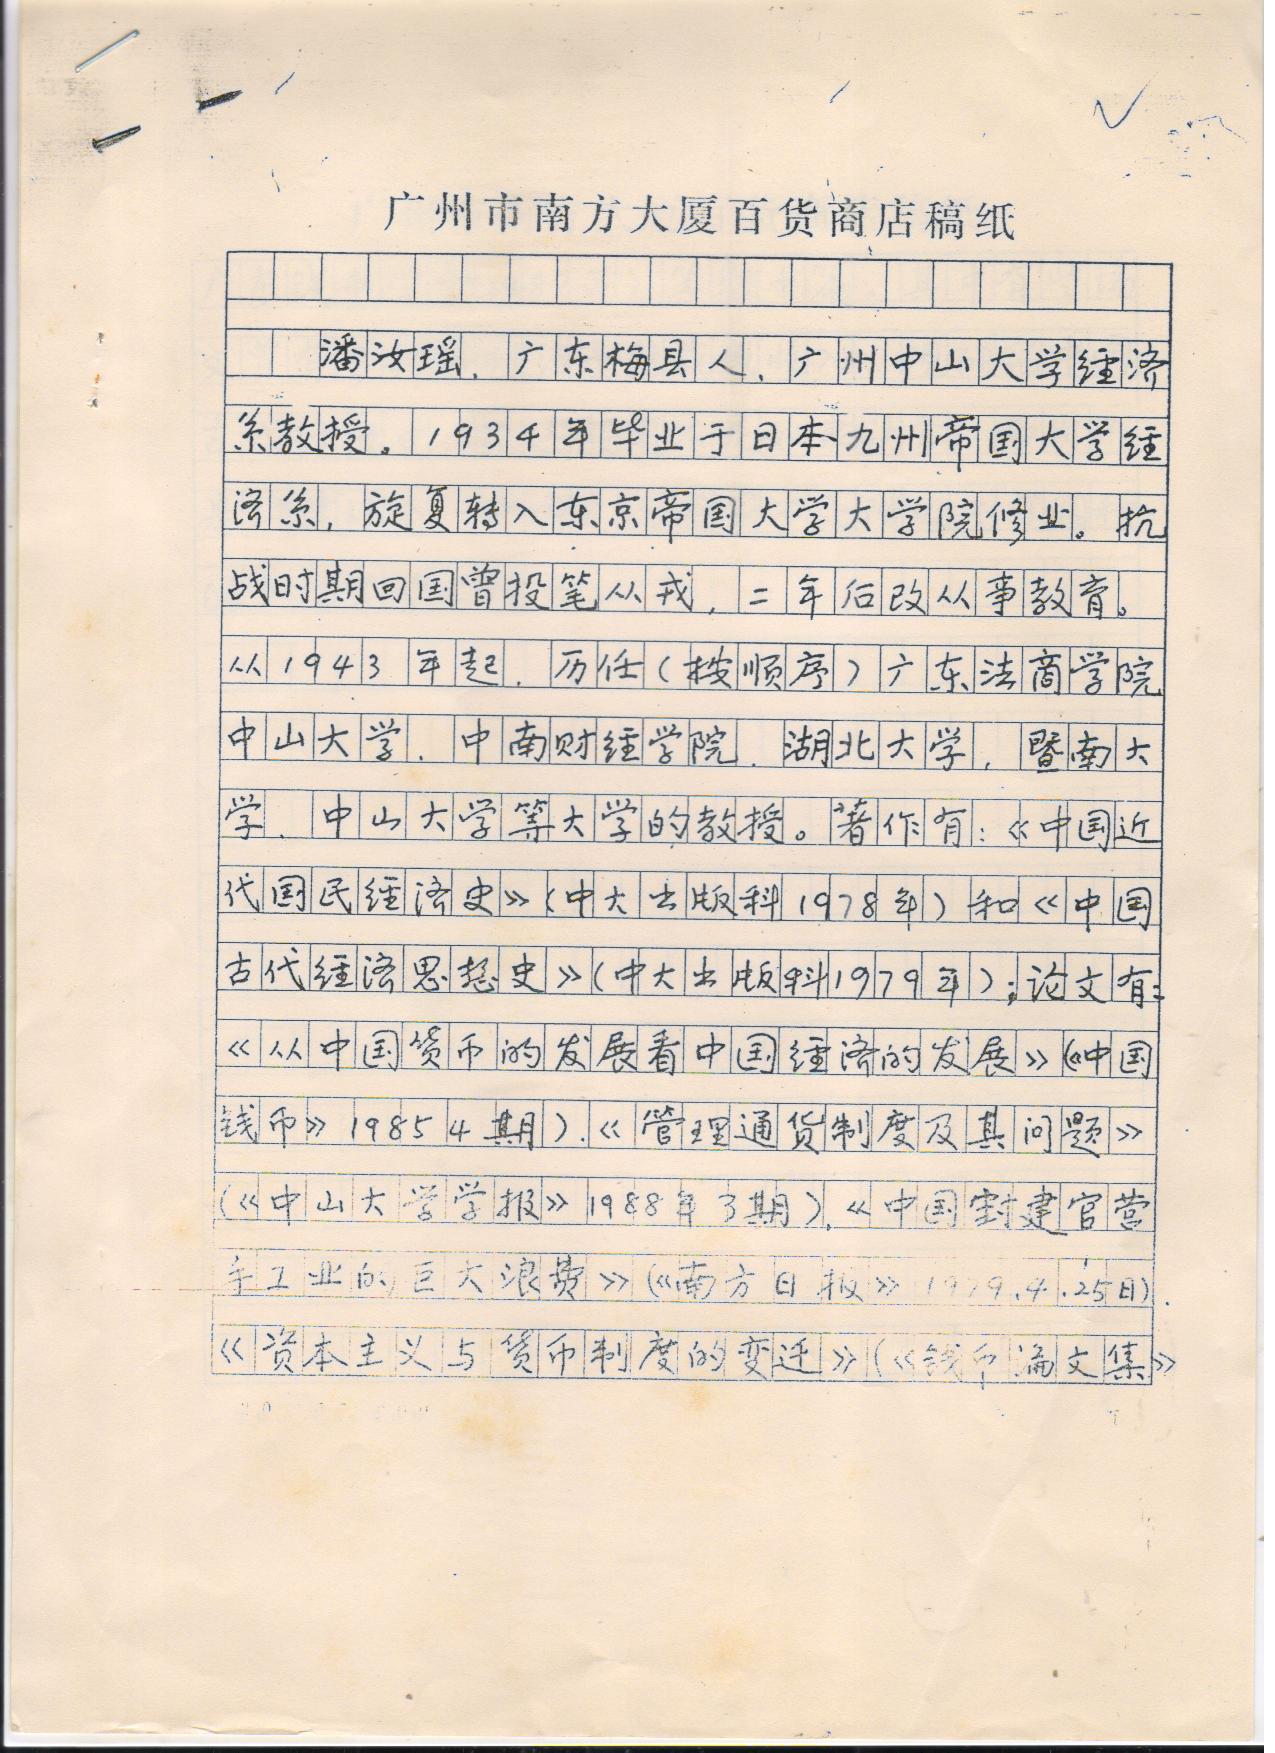 广州市南方大厦百货商店稿纸
潘汝瑶、广东梅县人、广州中山大学经济
系教授。1934年毕业于日本九州帝国大学经
济系，旋复转入东京帝国大学大学院修业。抗
战时期回国曾投笔从戎，二年后改从事教育。
从1943年起、历任（按顺序）广东法商学院
中山大学、中南财经学院、湖北大学、暨南大
学、中山大学等大学的教授。著作有：《中国近
代国民经济史》（中大出版科1978年）和《中国
古代经济思想史》（中大出版科1979年）；论文有：
《从中国货币的发展看中国经济的发展》（《中国
钱币》1985 4期）、《管理通货制度及其问题》
（《中山大学学报》1988年3期）、《中国封建官营
手工业的巨大浪费》（《南方日报》1979.4.25日）、
《资本主义与货币制度的变迁》（《钱币论文集》